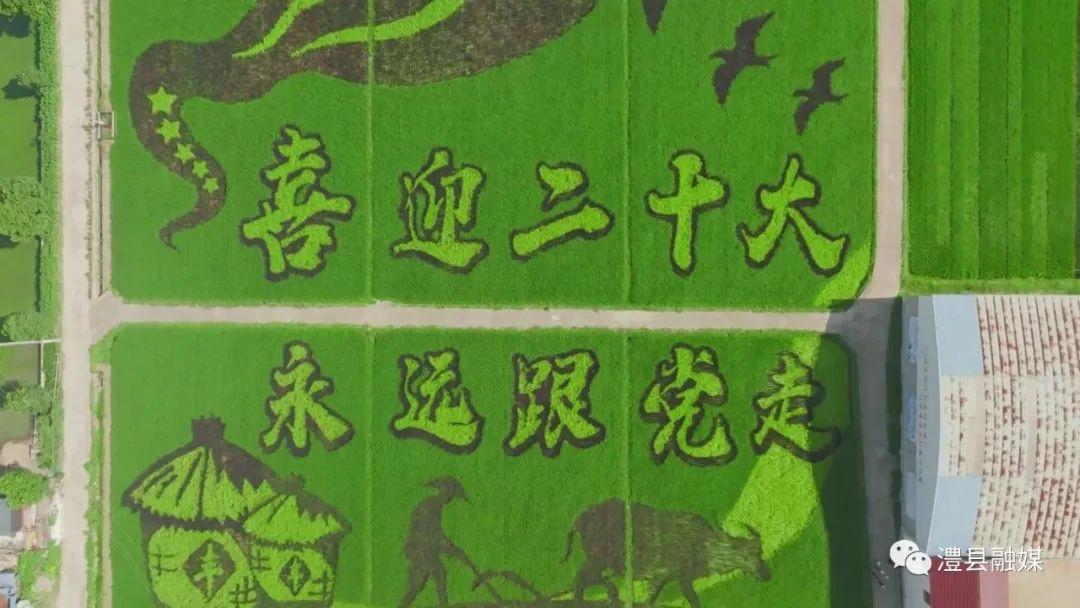 喜迎二十大
永远跟党走
澧县融媒